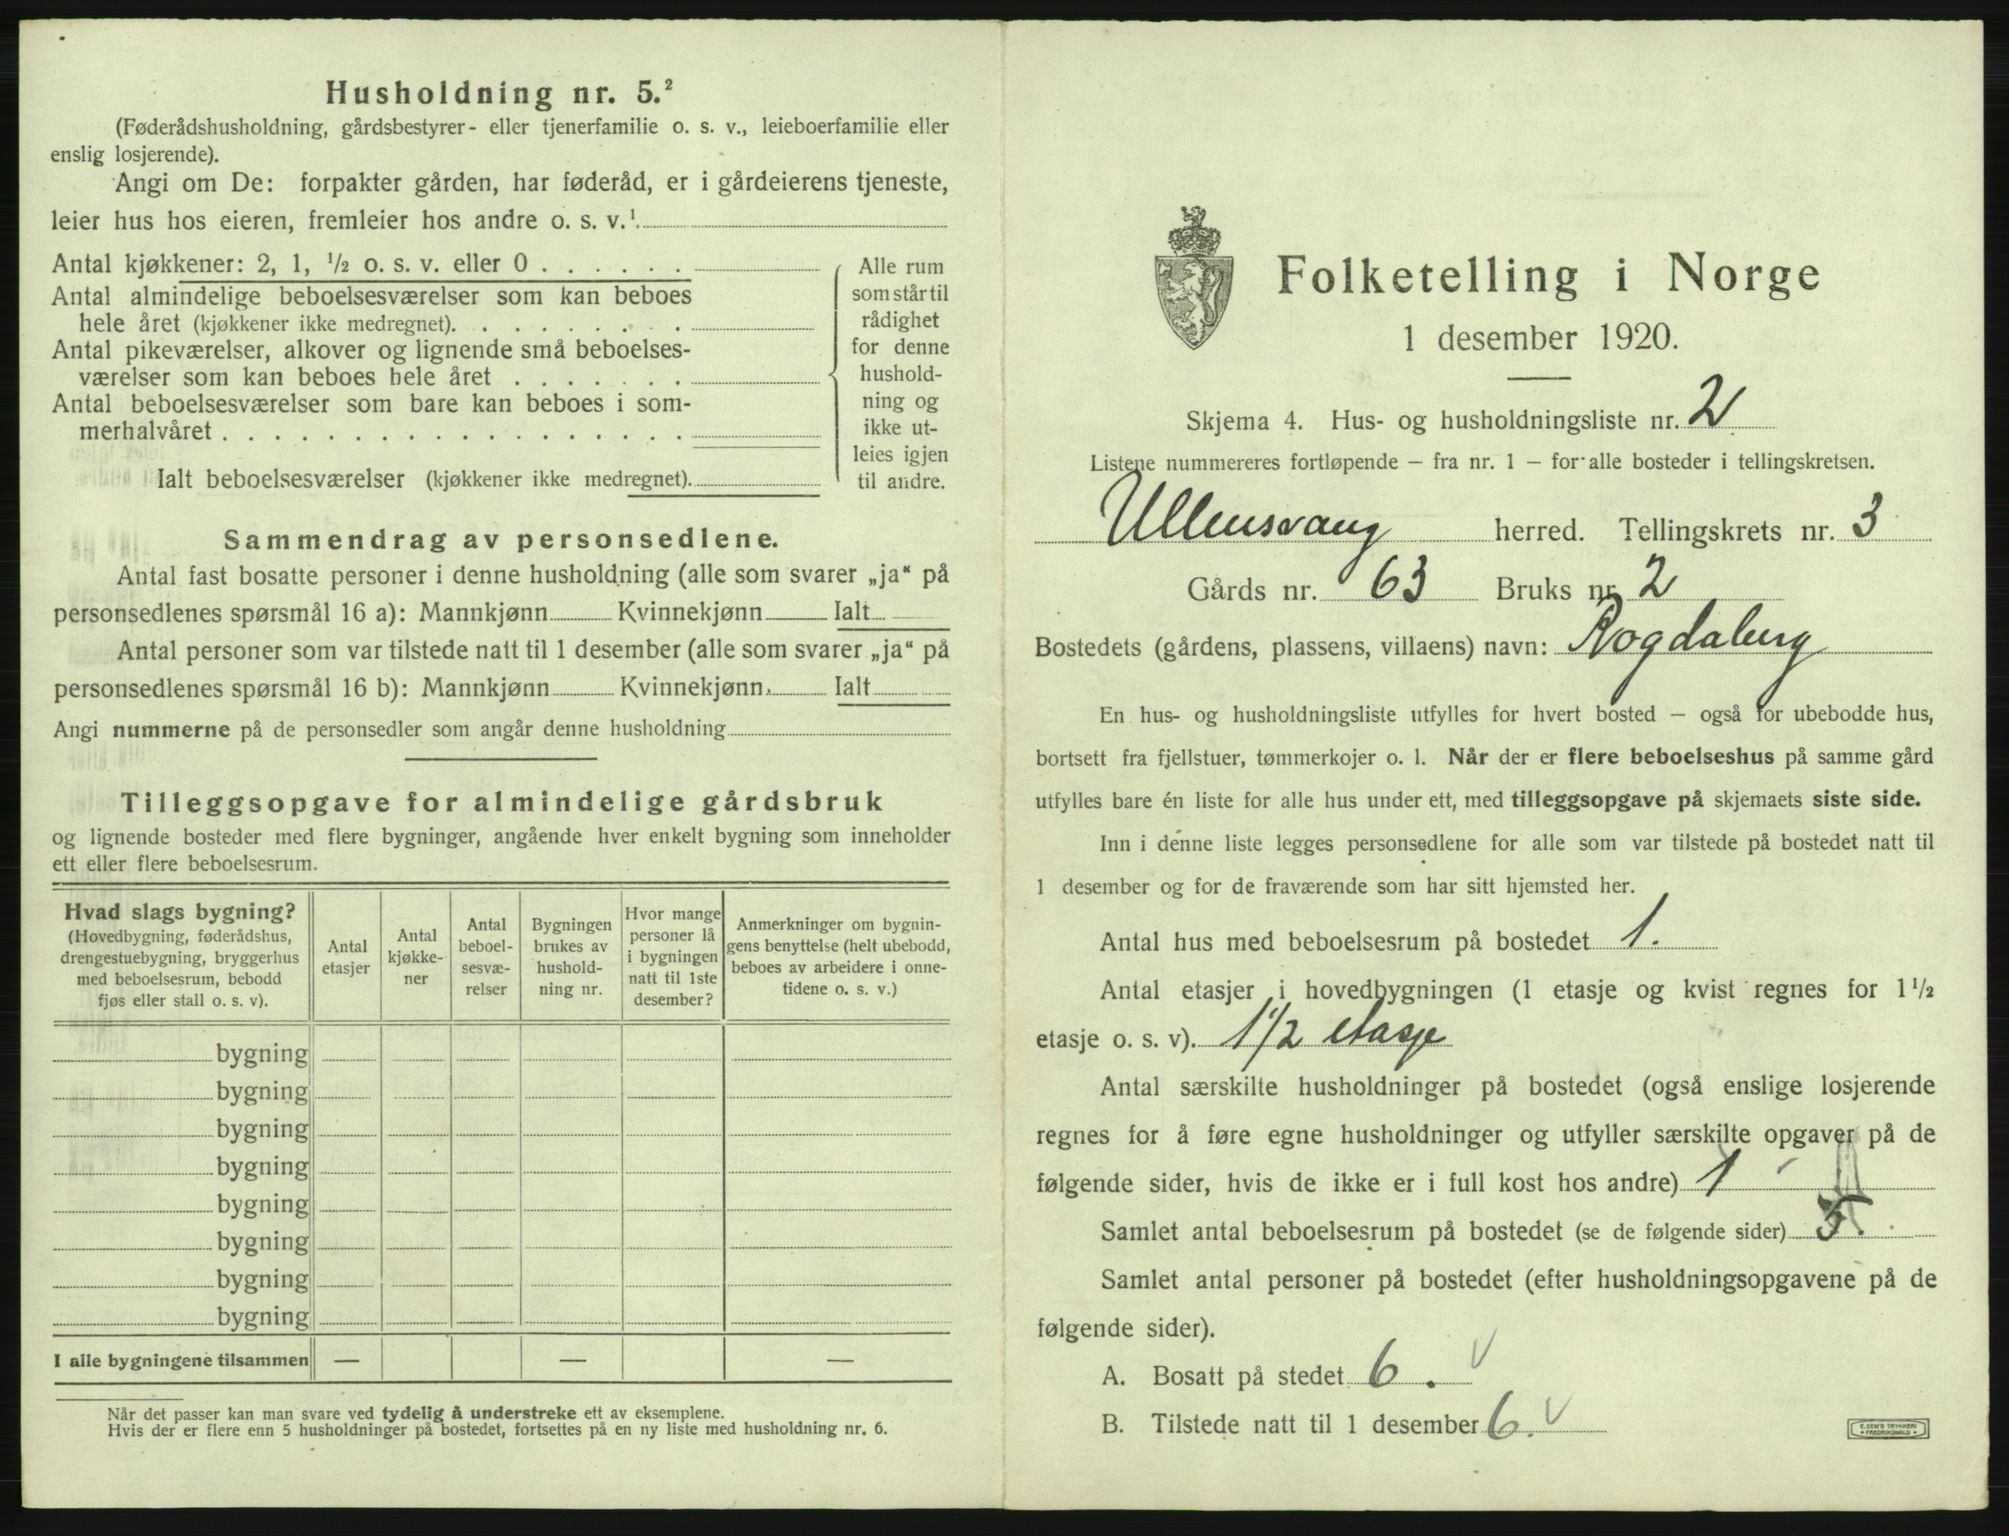 Husholdning nr. 5.²
(Føderådshusholdning, gårdsbestyrer- eller tjenerfamilie o. s. v., leieboerfamilie eller
enslig losjerende).
Angi om De: forpakter gården, har føderåd, er i gårdeierens tjeneste,
leier hus hos eieren, fremleier hos andre o. s. v.¹
Antal kjøkkener: 2, 1, ½ o. s. v. eller 0 . . . . . .
Antal almindelige beboelsesværelser som kan beboes
hele året (kjøkkener ikke medregnet). . . . . . . .
Antal pikeværelser, alkover og lignende små beboelses-
værelser som kan beboes hele året . . . . . . .
Antal beboelsesværelser som bare kan beboes i som-
merhalvåret . . . . . . . . . . . . . . . . .
Ialt beboelsesværelser (kjøkkener ikke medregnet).
Alle rum
som står til
rådighet
for denne
hushold-
ning og
ikke ut-
leies igjen
til andre.
Sammendrag av personsedlene.
Antal fast bosatte personer i denne husholdning (alle som svarer „ja“ på
personsedlenes spørsmål 16 a): Mannkjønn Kvinnekjønn Ialt
Antal personer som var tilstede natt til 1 desember (alle som svarer „ja“ på
personsedlenes spørsmål 16 b): Mannkjønn Kvinnekjønn. Ialt
Angi nummerne på de personsedler som angår denne husholdning
Tilleggsopgave for almindelige gårdsbruk
og lignende bosteder med flere bygninger, angående hver enkelt bygning som inneholder
ett eller flere beboelsesrum.
Hvad slags bygning?
(Hovedbygning, føderådshus,
drengestuebygning, bryggerhus
med beboelsesrum, bebodd
fjøs eller stall o. s. v).
Antal
etasjer
Antal
kjøkke-
ner
Antal
beboel-
sesvæ-
relser
Bygningen
brukes av
hushold-
ning nr.
Hvor mange
personer lå
i bygningen
natt til 1ste
desember?
Anmerkninger om bygnin-
gens benyttelse (helt ubebodd,
beboes av arbeidere i onne-
tidene o. s. v.)
bygning
bygning
bygning
bygning
bygning
bygning
bygning
bygning
I alle bygningene tilsammen — — —
Når det passer kan man svare ved tydelig å understreke ett av eksemplene.
Hvis der er flere enn 5 husholdninger på bostedet, fortsettes på en ny liste med husholdning nr. 6.
Folketelling i Norge
1 desember 1920.
Skjema 4. Hus- og husholdningsliste nr. 2
Listene nummereres fortløpende — fra nr. 1 — for alle bosteder i tellingskretsen.
Ullensvang herred. Tellingskrets nr. 3
Gårds nr. 63 Bruks nr. 2
Bostedets (gårdens, plassens, villaens) navn: Rogdaberg
En hus- og husholdningsliste utfylles for hvert bosted — også for ubebodde hus,
bortsett fra fjellstuer, tømmerkojer o. l. Når der er flere beboelseshus på samme gård
utfylles bare én liste for alle hus under ett, med tilleggsopgave på skjemaets siste side.
Inn i denne liste legges personsedlene for alle som var tilstede på bostedet natt til
1 desember og for de fraværende som har sitt hjemsted her.
Antal hus med beboelsesrum på bostedet 1.
Antal etasjer i hovedbygningen (1 etasje og kvist regnes for 1½
etasje o. s. v). 1 1/2 etasje
Antal særskilte husholdninger på bostedet (også enslige losjerende
regnes for å føre egne husholdninger og utfyller særskilte opgaver på de
følgende sider, hvis de ikke er i full kost hos andre) 1
Samlet antal beboelsesrum på bostedet (se de følgende sider)
Samlet antal personer på bostedet (efter husholdningsopgavene på de
følgende sider).
A. Bosatt på stedet 6.
B. Tilstede natt til 1 desember 6.